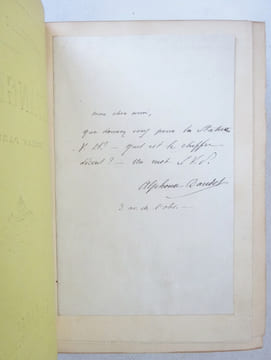 mon cher ami,
que donnez vous pour la Statue
V. H? — quel est le chiffre
décent? — un mot S.V.P.
Alphonse Daudet
3 av. de l'obs.